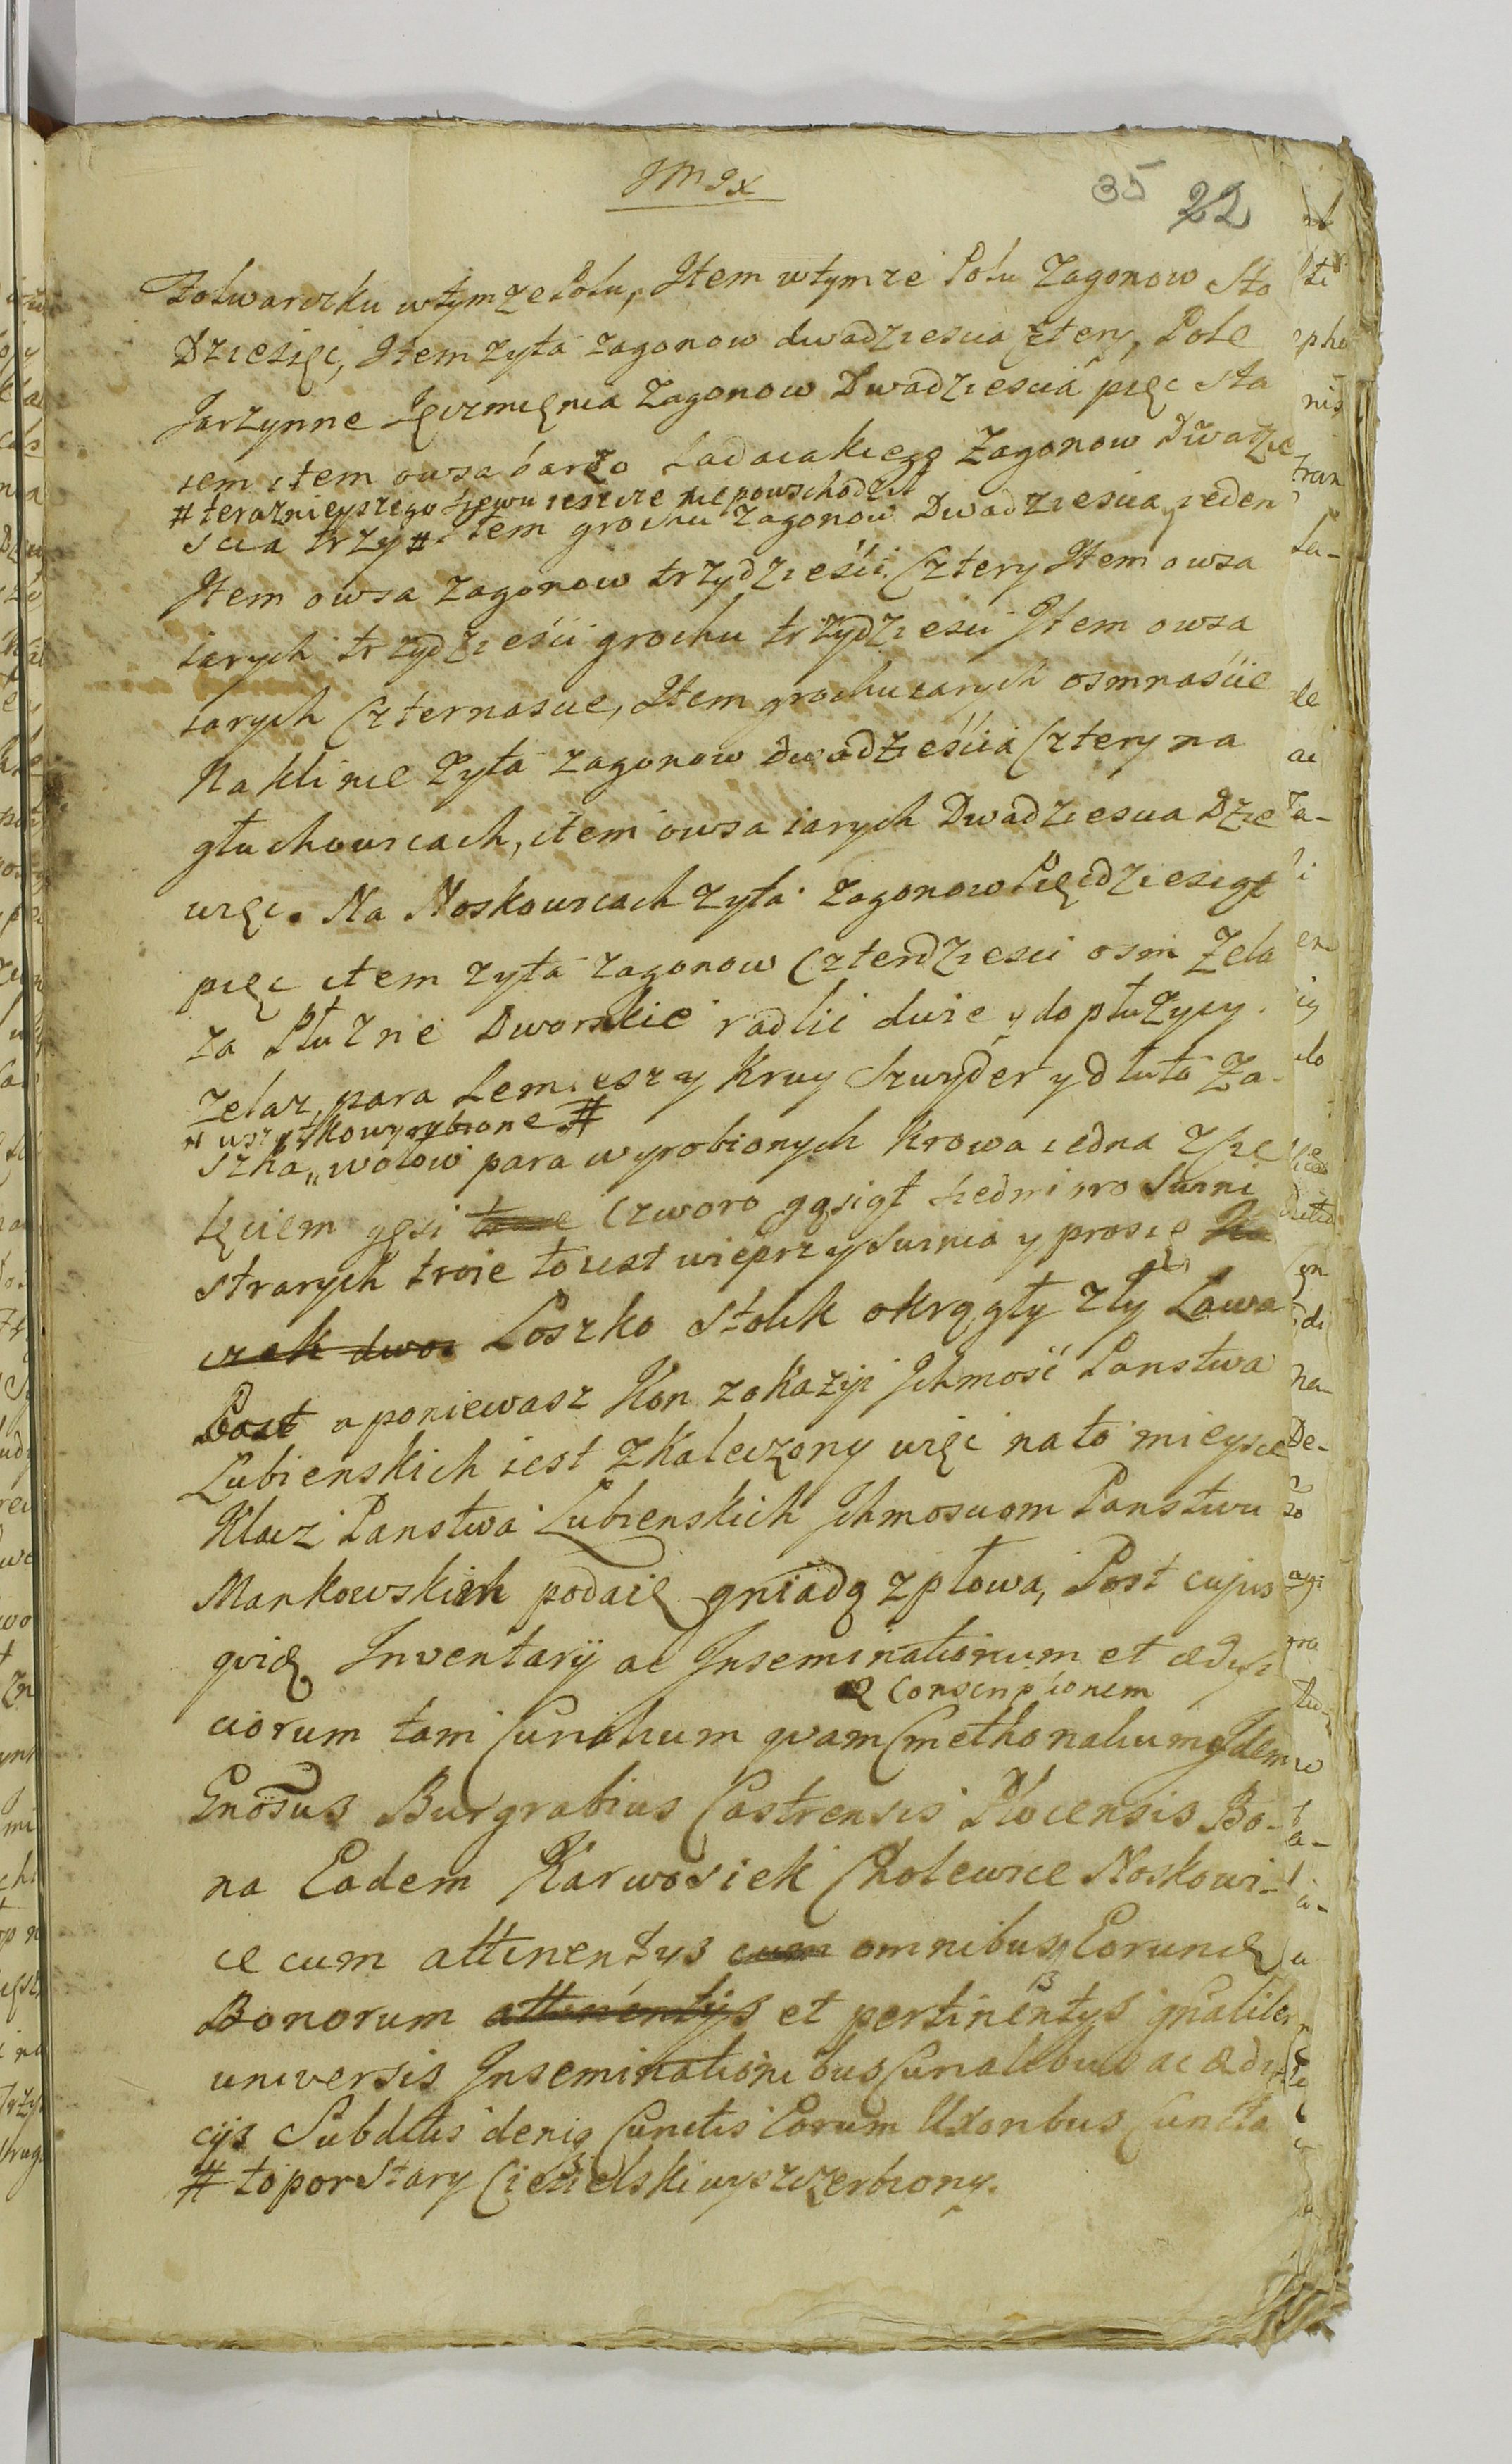 35 22
Folwarczku wtymze Polu, Item wtymze Polu Zagonow Sto
Dziesięc, Item zyta zagonow dwadziescia cztery, Pole
Jarzynne Jęczmięnia Zagonow Dwadziescia pięc sta
iem item owsa bardzo Ladaiakiego Zagonow Dwadzie
# teraznieyszego siewu ieszcze niepowschodził
scia trzy # Item grochu Zagonow Dwadziescia ieden
Item owsa Zagonow trzydzieści Cztery Item owsa
iarych trzydzieści grochu trzydziesci Item owsa
iarych Czternascie, Item grochu iarych osmnaście
Na klinie Zyta zagonow dwadzieścia Cztery na
głuchowicach, item owsa iarych Dwadziescia Dzie
więc. Na Noskowicach zyta zagonow Pięcdziesiąt
pięc item zyta zagonow Czterdziesci osm Zela
za Płuzne Dworskie radlic dwie y do płuzycy
zelaz, para Lemieszy Kruy Szwyder y dłuto Za
wszystko wyrobione #
szka, wołow para wyrobionych Krowa iedna zcie
lęciem gęsi Czworo gąsiąt siedmioro Swini
starych troie to iest wieprz y swinia y prosie
czek dwoie Loszko Stolik okrągły zły Lawa
a poniewasz Kon zokazyi Ichmość Panstwa
Lubienskich iest Zkaleczony więc nato mieysce
Klacz Panstwa Lubienskich Ichmosciom Panstwu
Markowskich podaię gniadą zpłowa, Post cujus
quid Inventarij ac Inseminationum et ædifi
Conscriptionem
ciorum tam Curialium quam Cmethonalium Idem
Gnosus Burgrabius Castrensis Plocensis Bo-
na Eadem Karwosiek Cholewice Noskowi-
ce cum attinentys cum omnibus Eorund
Bonorum attinentijs et pertinentys gnaliter
universis Inseminationibus Curialibus ac ædifi
cijs Subditis denis Cunctis Eorum Uxoribus Cuncta
# topor Stary Ciesielski wyszczerbiony.